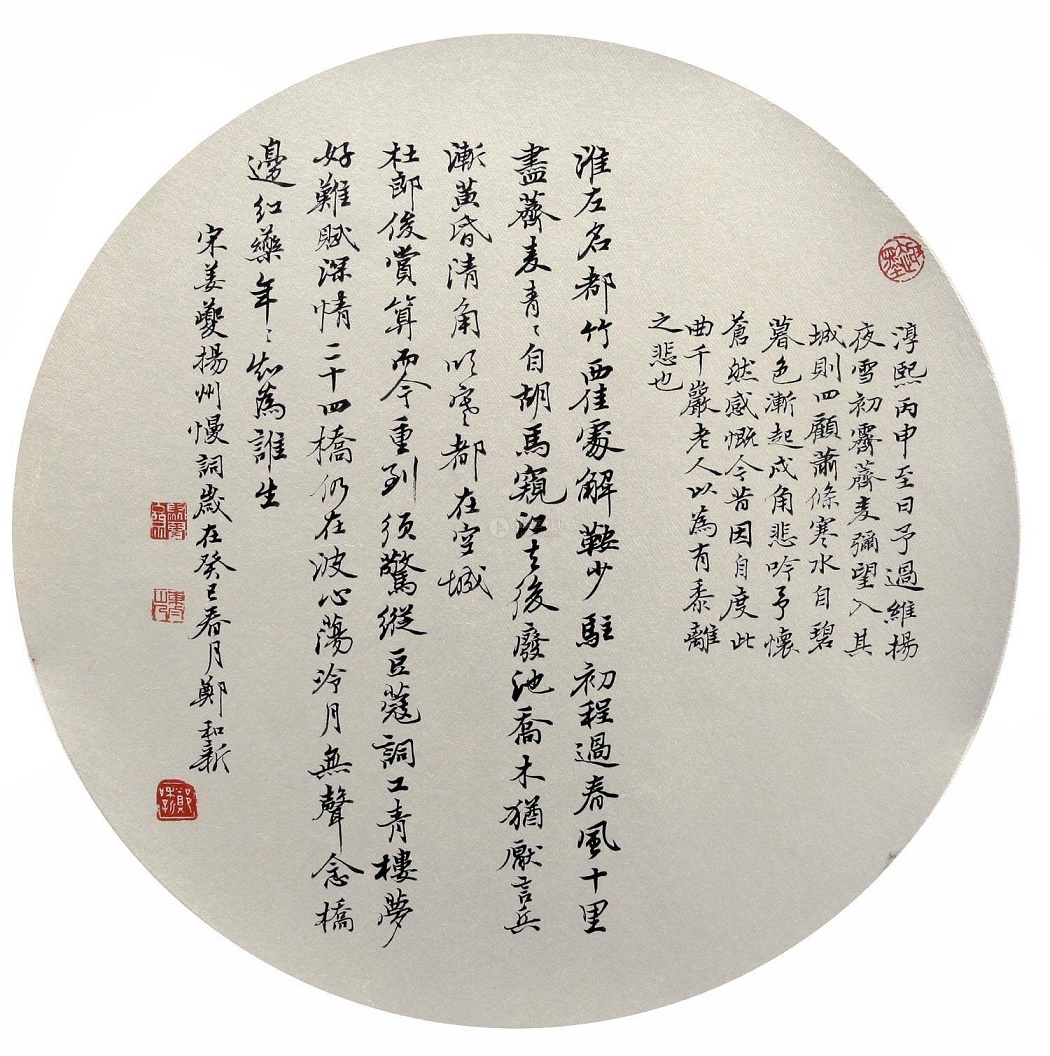 淳熙丙申至日予過維揚
夜雪初霽薺麦彌望入其
城則四顧蕭條寒水自碧
暮色漸起戍角悲吟予懷
蒼然感慨今昔因自度此
曲千巖老人以為有黍離
之悲也
淮左名都竹西佳處解鞍少駐初程過春風十里
盡薺麦青〻自胡馬窺江去後廢池喬木猶厭言兵
漸黄昏清角吹寒都在空城
杜郎俊賞算而今重到須驚縱豆蔻詞工青樓夢
好難賦深情二十四橋仍在波心蕩冷月無聲念橋
邊紅藥年〻知為誰生
宋姜夔揚州慢詞歲在癸巳春月鄭和新